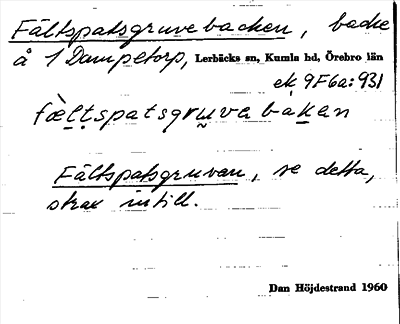 Fältspatsgruvebacken, backe
å 1 Dampetorp, Lerbäcks sn, Kumla hd, Örebro län
ek 9F6a:931
fæ̀ḷṭspatsgru̬va bak̠an
Fältspatsgruvan, se detta,
strax intill.
Dan Höjdestrand 1960